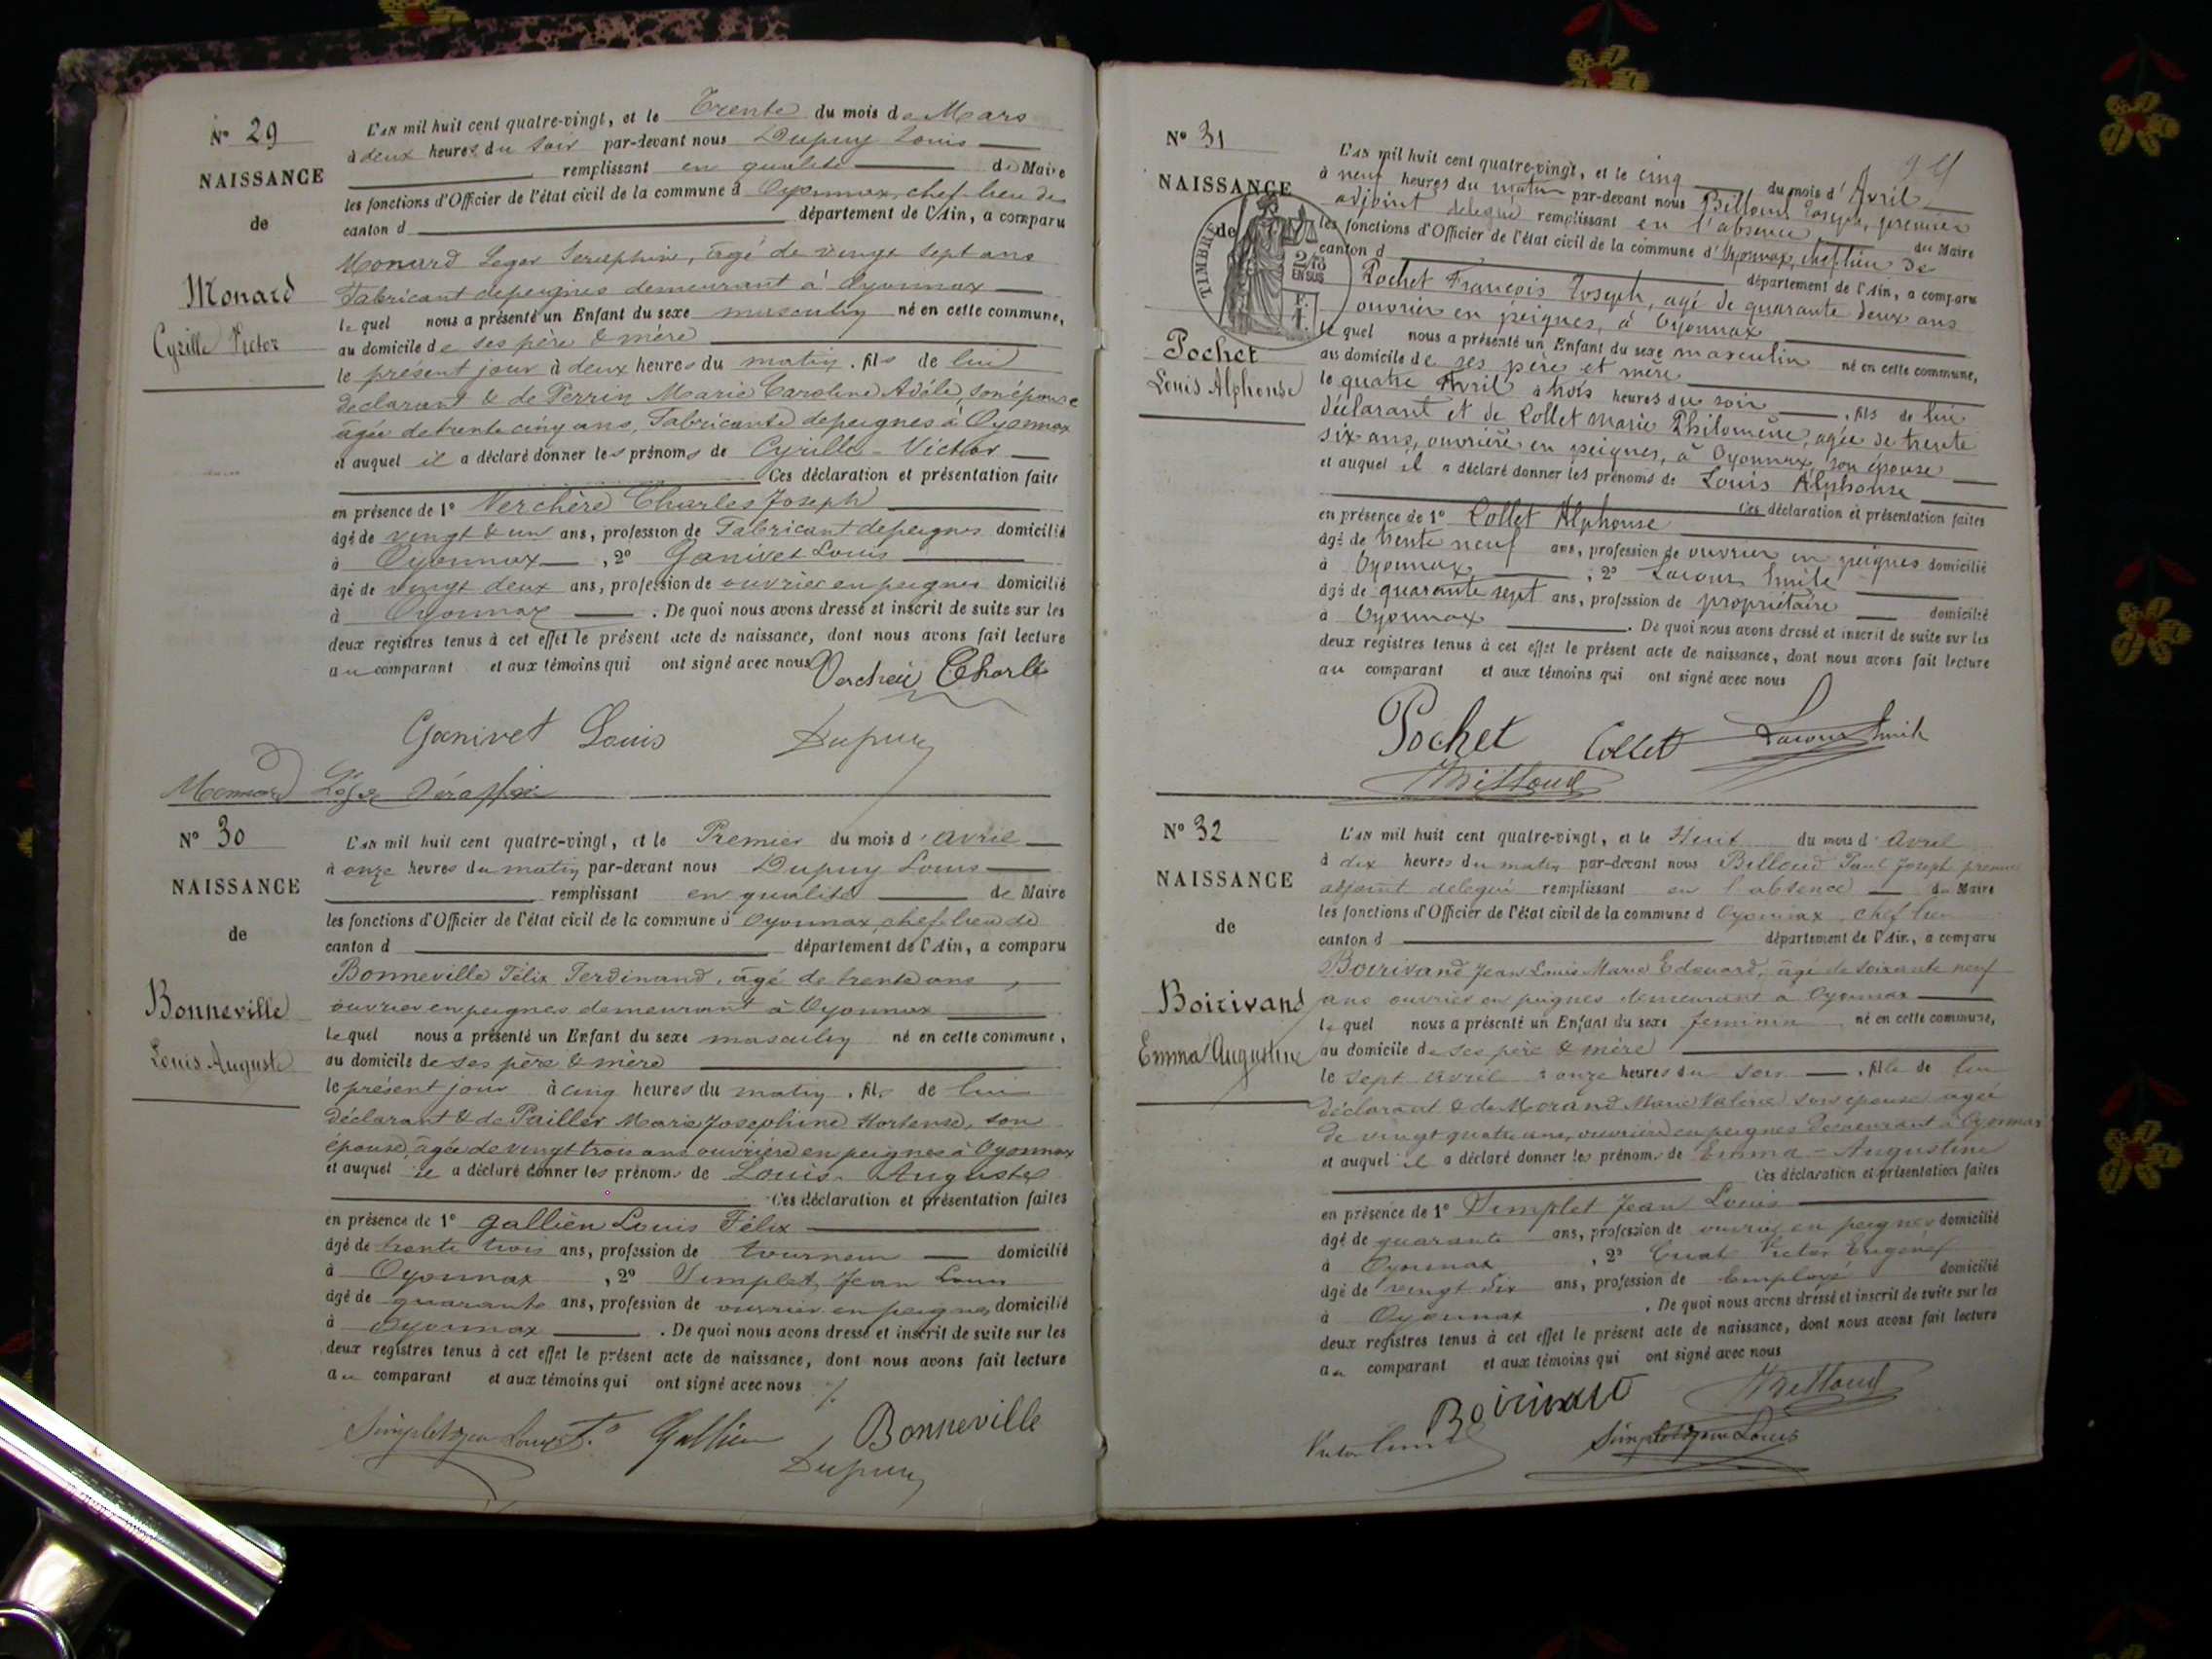 N° 29
NAISSANCE
de
Monard
Cyrille Victor
L'AN mil huit cent quatre-vingt, et le Trente du mois de Mars
à deux heures du soir par-devant nous Dupuy Louis
remplissant en qualité de Maire
les fonctions d'Officier de l'état civil de la commune d Oyonnax, chef-lieu de
canton d département de l'Ain, a comparu
Monard Leger Seraphin, âgé de vingt sept ans
Fabricant de peignes demeurant à Oyonnax
le quel nous a présenté un Enfant du sexe masculin né en cette commune,
au domicile de ses père & mère
le présent jour à deux heures du matin, fils de lui
déclarant & de Perrin Marie Caroline Adèle, son épouse
âgée de trente cinq ans, Fabricante de peignes à Oyonnax
et auquel il a déclaré donner les prénoms de Cyrille-Victor
Ces déclaration et présentation faites
en présence de 1° Verchère Charles Joseph
âgé de vingt & un ans, profession de Fabricant de peignes domicilié
à Oyonnax, 2° Ganivet Louis
âgé de vingt deux ans, profession de ouvrier en peignes domicilié
à Oyonnax. De quoi nous avons dressé et inscrit de suite sur les
deux registres tenus à cet effet le présent acte de naissance, dont nous avons fait lecture
au comparant et aux témoins qui ont signé avec nous Verchère Charle
Ganivet Louis Dupuy
Monnard Léger Séraphin
N° 30
NAISSANCE
de
Bonneville
Louis Auguste
L'AN mil huit cent quatre-vingt, et le Premier du mois d'avril
à onze heures du matin par-devant nous Dupuy Louis
remplissant en qualité de Maire
les fonctions d'Officier de l'état civil de la commune d Oyonnax, chef-lieu de
canton d département de l'Ain, a comparu
Bonneville Félix Ferdinand, âgé de trente ans,
ouvrier en peignes demeurant à Oyonnax
le quel nous a présenté un Enfant du sexe masculin né en cette commune,
au domicile de ses père & mère
le présent jour à cinq heures du matin, fils de lui
déclarant & de Pailler Marie Josephine Hortense, son
épouse, âgée de vingt trois ans ouvrière en peignes à Oyonnax
et auquel il a déclaré donner les prénoms de Louis-Auguste
Ces déclaration et présentation faites
en présence de 1° Gallien Louis Félix
âgé de trente trois ans, profession de tourneur domicilié
à Oyonnax, 2° Simplet Jean Louis
âgé de quarante ans, profession de ouvrier en peignes domicilié
à Oyonnax. De quoi nous avons dressé et inscrit de suite sur les
deux registres tenus à cet effet le présent acte de naissance, dont nous avons fait lecture
au comparant et aux témoins qui ont signé avec nous
Simplet Jean Louis Gallien Bonneville
Dupuy
N° 31
NAISSANCE
de
TIMBRE
2/10
EN SUS
Pochet
Louis Alphonse
L'AN mil huit cent quatre-vingt, et le cinq du mois d'Avril
à neuf heures du matin par-devant nous Billoud Joseph, premier
adjoint délégué remplissant en l'absence du Maire
les fonctions d'Officier de l'état civil de la commune d'Oyonnax, chef lieu de
canton d département de l'Ain, a comparu
Pochet François Joseph, agé de quarante deux ans
ouvrier en peignes, à Oyonnax
le quel nous a présenté un Enfant du sexe masculin né en cette commune,
au domicile de ses père et mère
le quatre Avril à trois heures du soir, fils de lui
déclarant et de Collet Marie Philomène, agée de trente
six ans, ouvrière en peignes, à Oyonnax, son épouse
et auquel il a déclaré donner les prénoms de Louis Alphonse
Ces déclaration et présentation faites
en présence de 1° Collet Alphonse
âgé de trente neuf ans, profession de ouvrier en peignes domicilié
à Oyonnax, 2° Lacour Emile
âgé de quarante sept ans, profession de propriétaire domicilié
à Oyonnax. De quoi nous avons dressé et inscrit de suite sur les
deux registres tenus à cet effet le présent acte de naissance, dont nous avons fait lecture
au comparant et aux témoins qui ont signé avec nous
Pochet Collet Lacour Emile
Billoud
N° 32
NAISSANCE
de
Boirivand
Emma Augustine
L'AN mil huit cent quatre-vingt, et le Huit du mois d'avril
à dix heures du matin par-devant nous Billoud Paul Joseph premier
adjoint délégué remplissant en l'absence du Maire
les fonctions d'Officier de l'état civil de la commune d Oyonnax chef lieu
canton d département de l'Ain, a comparu
Boirivand Jean Louis Marie Edouard, âgé de soixante neuf
ans ouvrier en peignes demeurant à Oyonnax
le quel nous a présenté un Enfant du sexe feminin né en cette commune,
au domicile de ses père & mère
le sept avril à onze heures du soir, fille de lui
déclarant & de Morand Marie Valérie son épouse agée
de vingt quatre ans, ouvrière en peignes demeurant à Oyonnax
et auquel il a déclaré donner les prénoms de Emma-Augustine
Ces déclaration et présentation faites
en présence de 1° Simplet Jean Louis
âgé de quarante ans, profession de ouvrier en peignes domicilié
à Oyonnax, 2° Victor Eugène
âgé de vingt six ans, profession de Employé domicilié
à Oyonnax. De quoi nous avons dressé et inscrit de suite sur les
deux registres tenus à cet effet le présent acte de naissance, dont nous avons fait lecture
au comparant et aux témoins qui ont signé avec nous
Boirivand Billoud
Victor Simplet Jean Louis